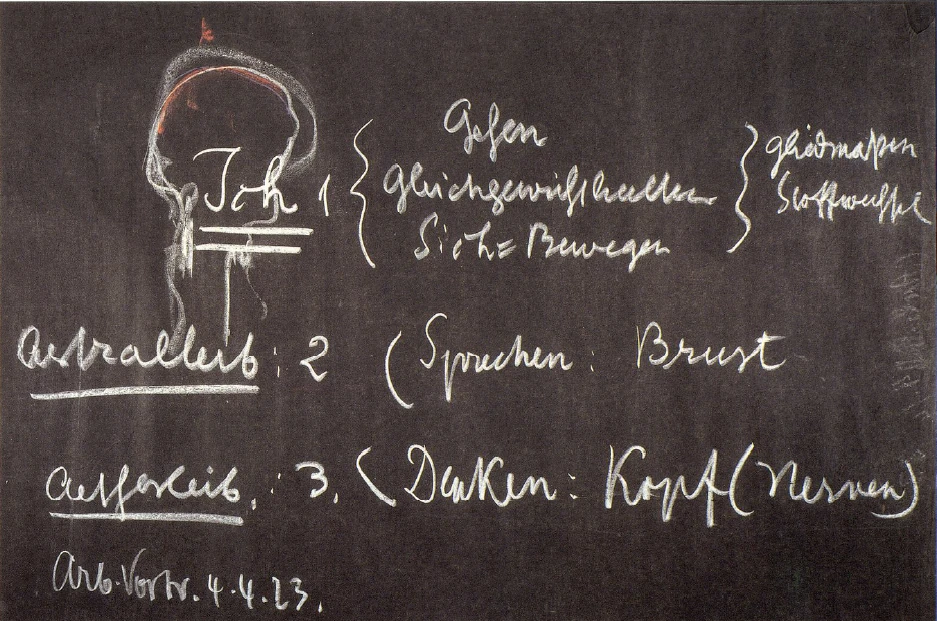 Gehen
Gleichgewichthalten
Sich=Bewegen
Gliedmaßen
Stoffwechsel
Ich 1
Astralleib : 2 (Sprechen : Brust
Aetherleib. : 3. Denken : Kopf (Nerven)
Arb. Vortr. 4.4.23.